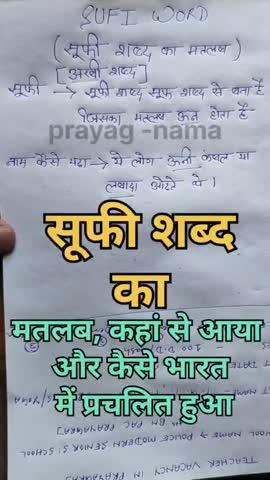 SUFI WORD
(सूफी शब्द का मतलब)
[अरबी शब्द]
सूफी → सूफी शब्द सूफ शब्द से बना है
जिसका मतलब ऊन होता है
prayag -nama
नाम कैसे पड़ा → ये लोग ऊनी कंबल या
लबादा ओढते थे।
सूफी शब्द
का
मतलब, कहां से आया
और कैसे भारत
में प्रचलित हुआ
TEACHER VACANCY IN PRAYAGRAJ
SCHOOL NAME → POLICE MODERN SENIOR S. SCHOOL